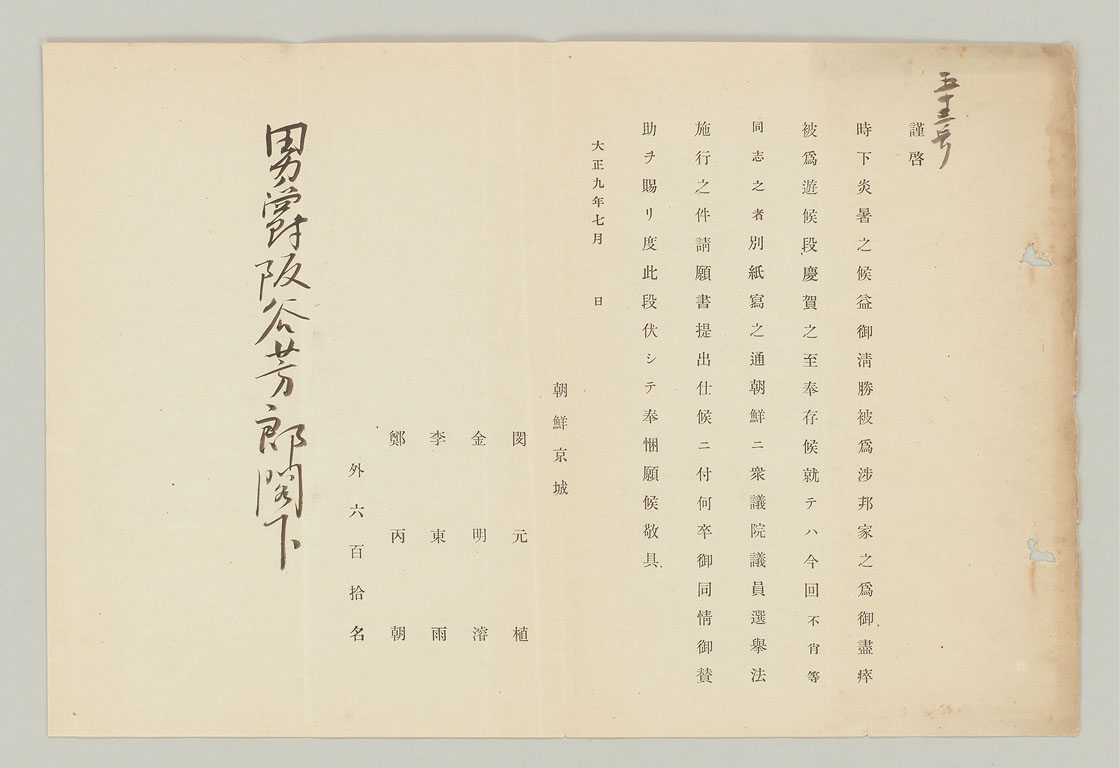 五十三号
謹啓
時下炎暑之候益御淸勝被爲涉邦家之爲御盡瘁
被爲遊候段慶賀之至奉存候就テハ今回不肖等
同志之者別紙寫之通朝鮮ニ衆議院議員選擧法
施行之件請願書提出仕候ニ付何卒御同情御賛
助ヲ賜リ度此段伏シテ奉悃願候敬具
大正九年七月 日
朝鮮京城
閔元植
金明濬
李東雨
鄭丙朝
外六百拾名
男爵阪谷芳郎閣下